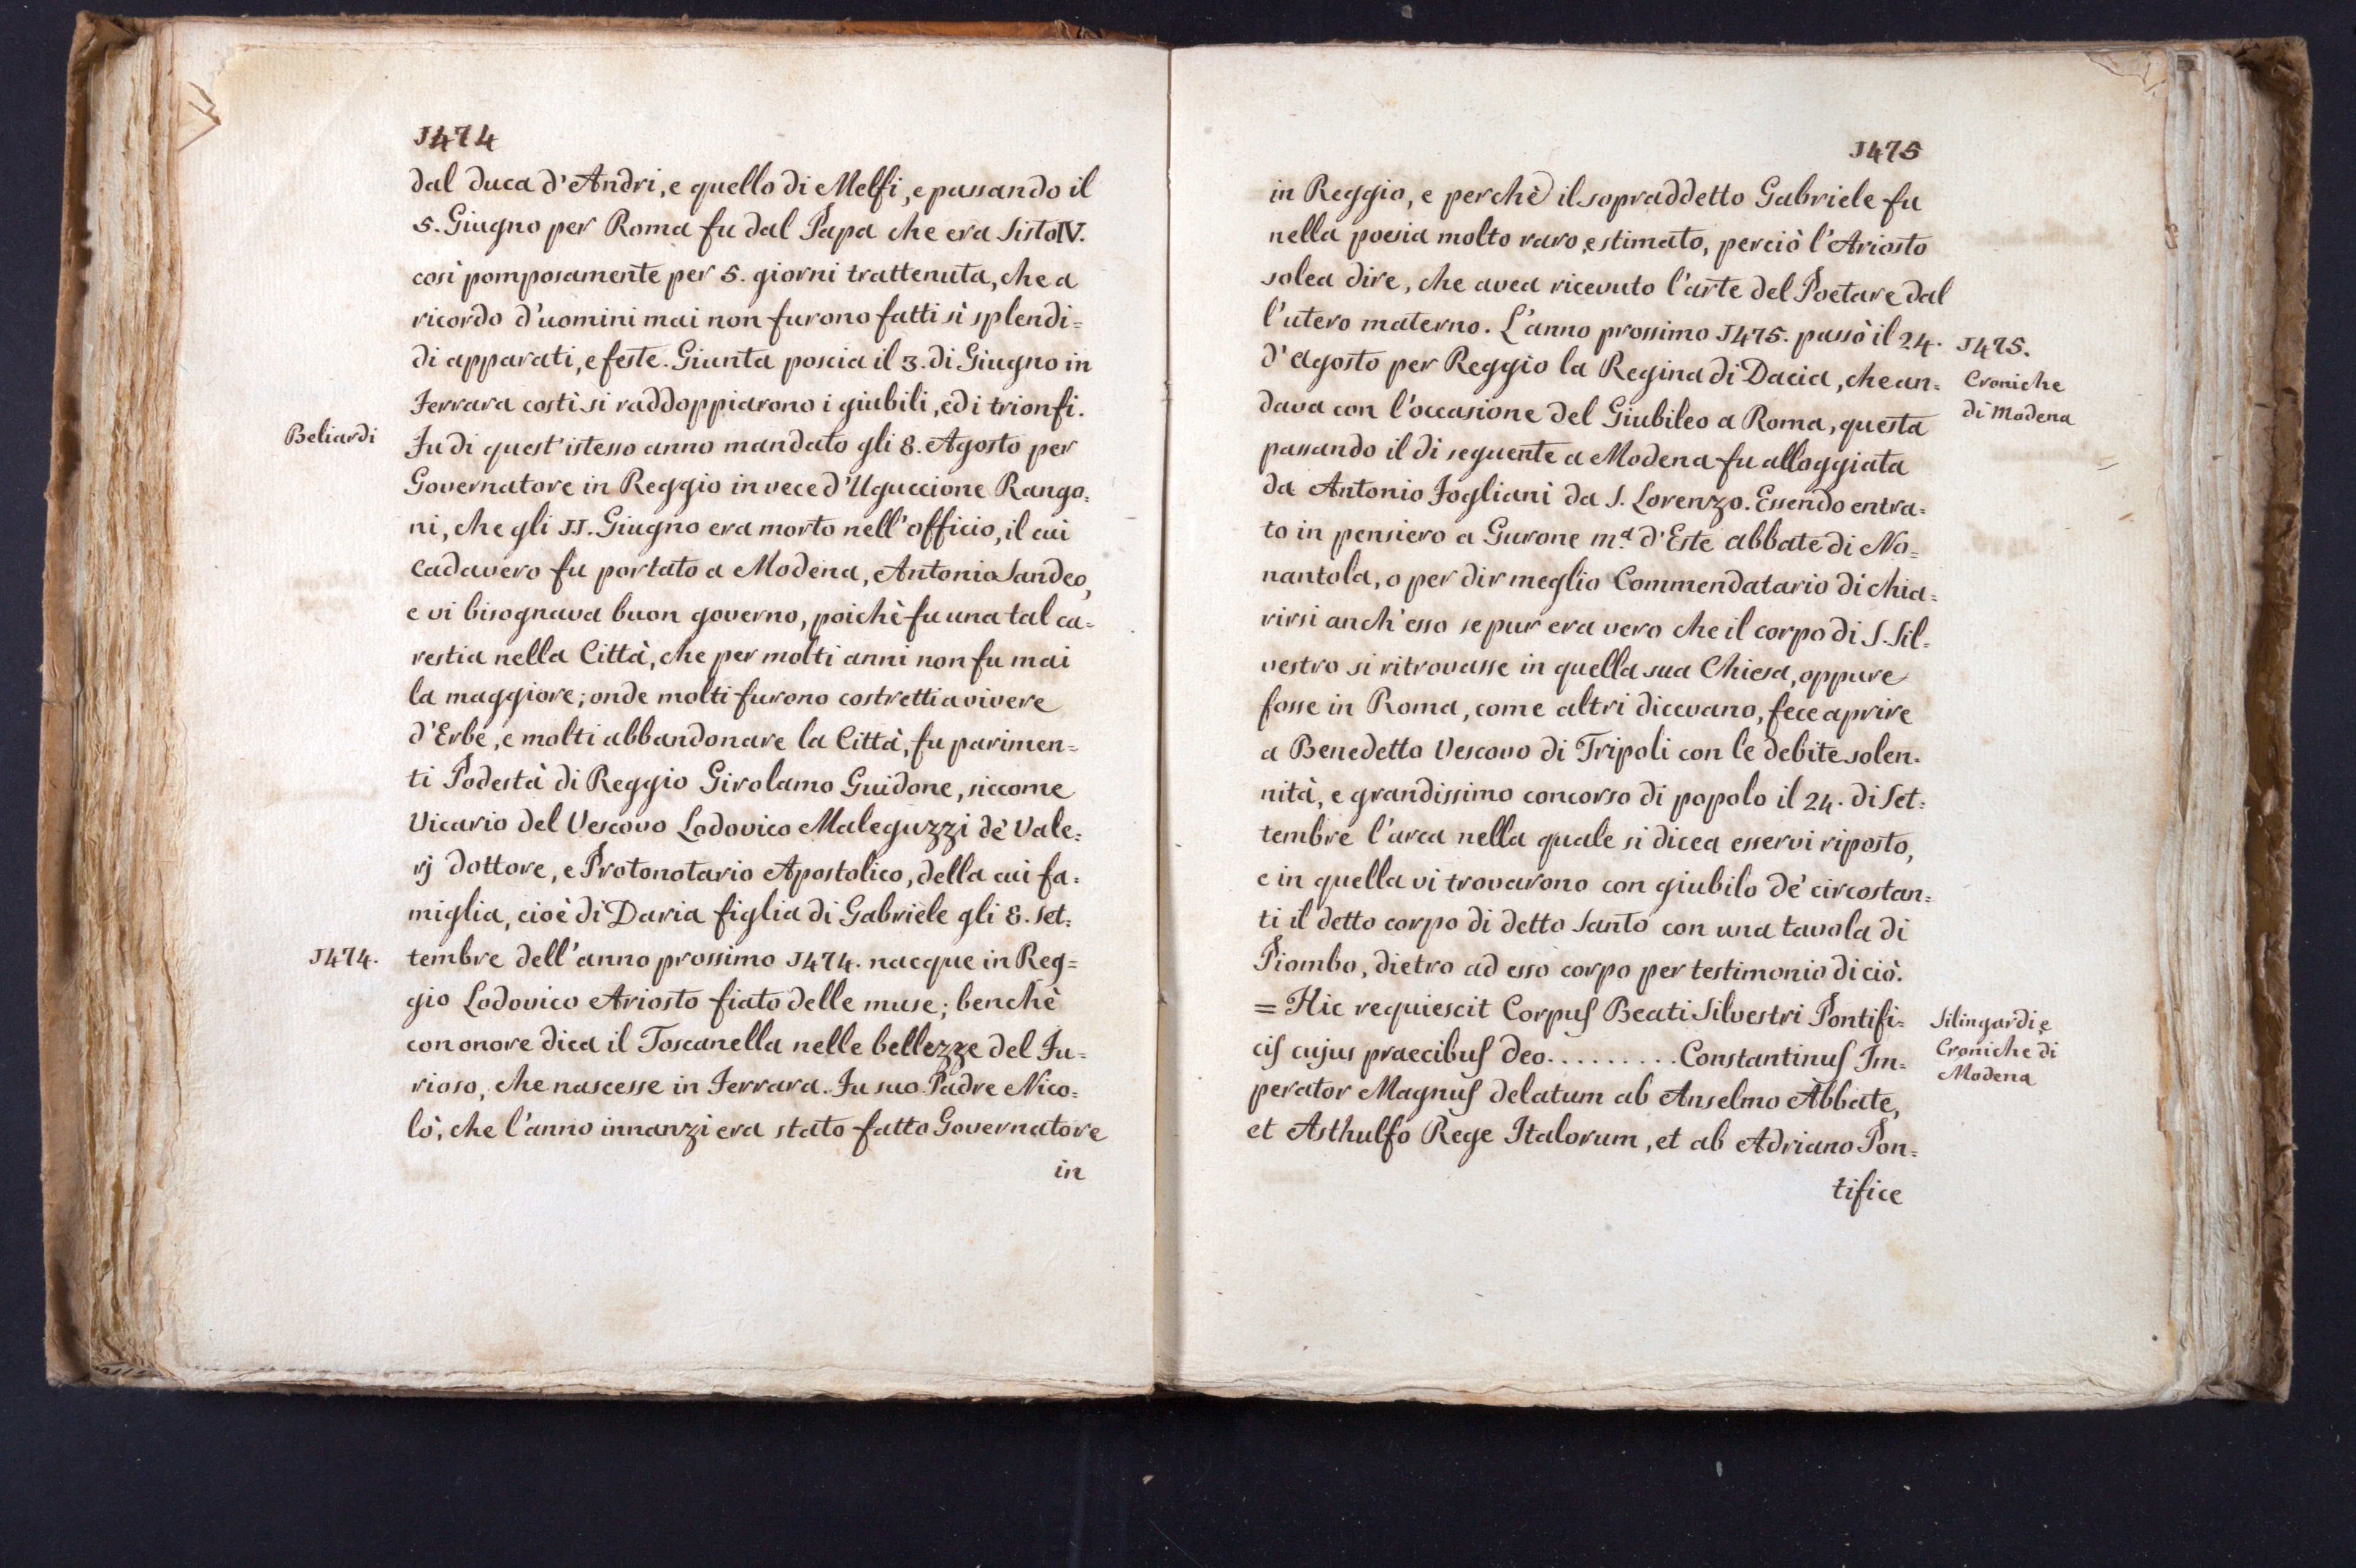 1474
dal duca d'Andri, e quello di Melfi, e passando il
5. Giugno per Roma fu dal Papa che era Sisto IV.
così pomposamente per 5. giorni trattenuta, che a
ricordo d'uomini mai non furono fatti sì splendi=
di apparati, e feste. Giunta poscia il 3. di Giugno in
Ferrara costì si raddoppiarono i giubili, ed i trionfi.
Beliardi
Fu di quest'istesso anno mandato gli 8. Agosto per
Governatore in Reggio in vece d'Uguccione Rango=
ni, che gli 11. Giugno era morto nell'officio, il cui
cadavero fu portato a Modena, Antonio Sandeo,
e vi bisognava buon governo, poichè fu una tal ca=
restia nella Città, che per molti anni non fu mai
la maggiore; onde molti furono costretti a vivere
d'Erbe, e molti abbandonare la Città, fu parimen=
ti Podestà di Reggio Girolamo Guidone, siccome
Vicario del Vescovo Lodovico Maleguzzi de' Vale=
rj dottore, e Protonotario Apostolico, della cui fa=
miglia, cioè di Daria figlia di Gabriele gli 8. Set=
1474.
tembre dell'anno prossimo 1474. nacque in Reg=
gio Lodovico Ariosto fiato delle muse; benchè
con onore dica il Toscanella nelle bellezze del Fu=
rioso, che nascesse in Ferrara. Fu suo Padre Nico=
lò, che l'anno innanzi era stato fatto Governatore
in
1475
in Reggio, e perchè il sopraddetto Gabriele fu
nella poesia molto raro, e stimato, perciò l'Ariosto
solea dire, che avea ricevuto l'arte del Poetare dal
l'utero materno. L'anno prossimo 1475. passò il 24.
1475.
d'Agosto per Reggio la Regina di Dacia, che an=
Croniche
di Modena
dava con l'occasione del Giubileo a Roma, questa
passando il di seguente a Modena fu alloggiata
da Antonio Fogliani da S. Lorenzo. Essendo entra=
to in pensiero a Gurone m.a d'Este abbate di No=
nantola, o per dir meglio Commendatario di chia=
rirsi anch'esso se pur era vero che il corpo di S. Sil=
vestro si ritrovasse in quella sua Chiesa, oppure
fosse in Roma, come altri dicevano, fece aprire
a Benedetto Vescovo di Tripoli con le debite solen=
nità, e grandissimo concorso di popolo il 24. di Set=
tembre l'arca nella quale si dicea esservi riposto,
e in quella vi trovarono con giubilo de' circostan=
ti il detto corpo di detto Santo con una tavola di
Piombo, dietro ad esso corpo per testimonio di ciò.
= Hic requiescit Corpus Beati Silvestri Pontifi=
Silingardi e
Croniche di
Modena
cis cujus praecibus deo. . . . . . . . . Constantinus Im=
perator Magnus delatum ab Anselmo Abbate,
et Asthulfo Rege Italorum, et ab Adriano Pon=
tifice